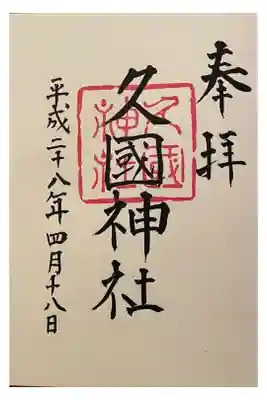 奉拝
久國神社
久國神社
平成二十八年四月十八日